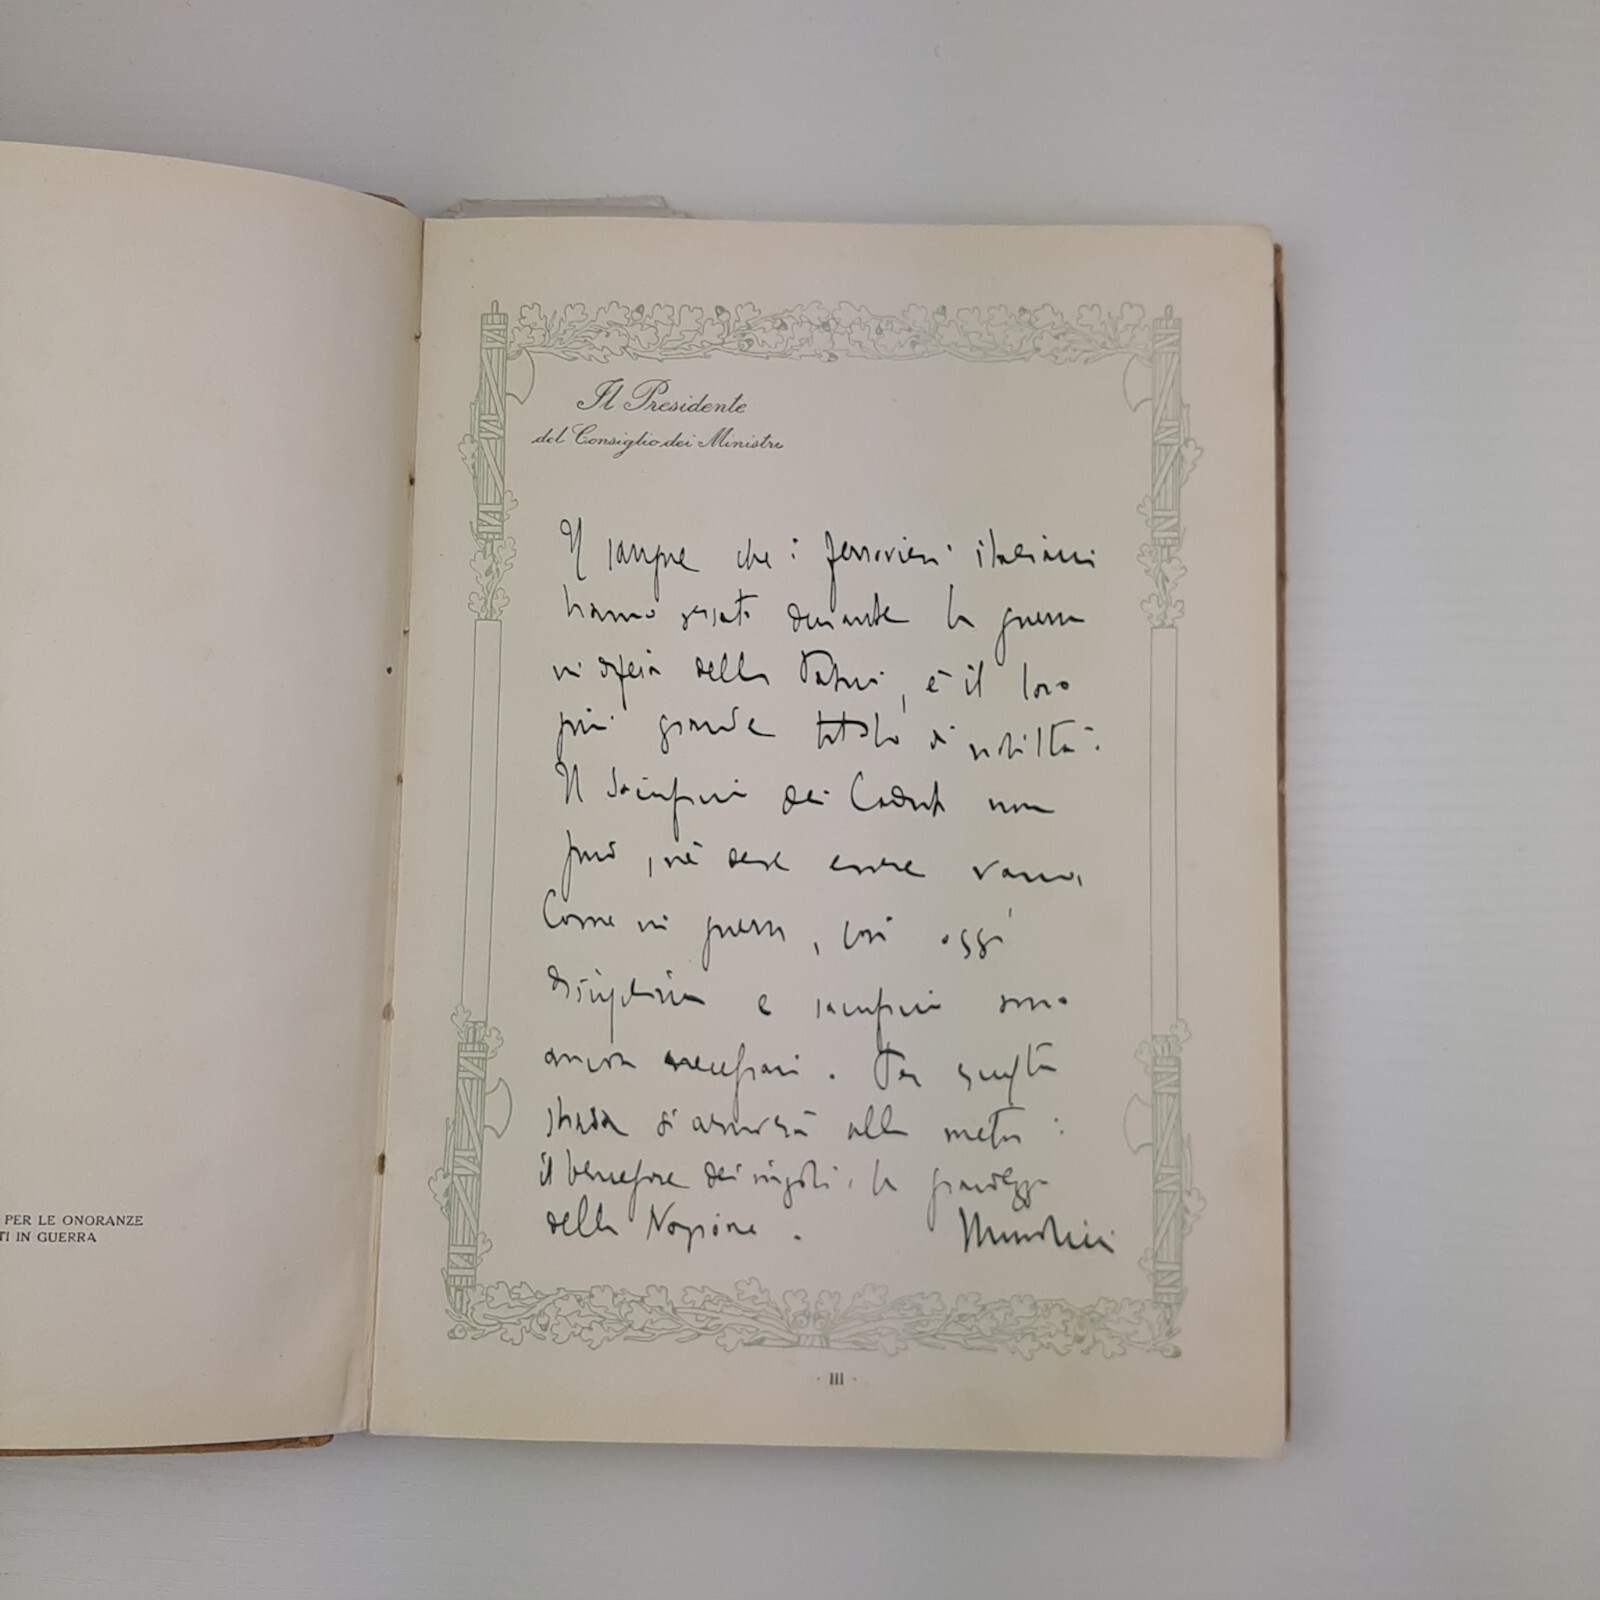 PER LE ONORANZE
TI IN GUERRA
Il Presidente
del Consiglio dei Ministri
Il sangue che i ferrovieri italiani
hanno versato durante la guerra
in difesa della Patria, è il loro
più grande titolo di nobiltà.
Il sacrificio dei Caduti non
può, nè deve essere vano.
Come in guerra, così oggi
disciplina e sacrificio sono
ancora necessari. Per questa
strada si arriverà alla meta:
il benessere dei singoli, la grandezza
della Nazione. Mussolini
· III ·